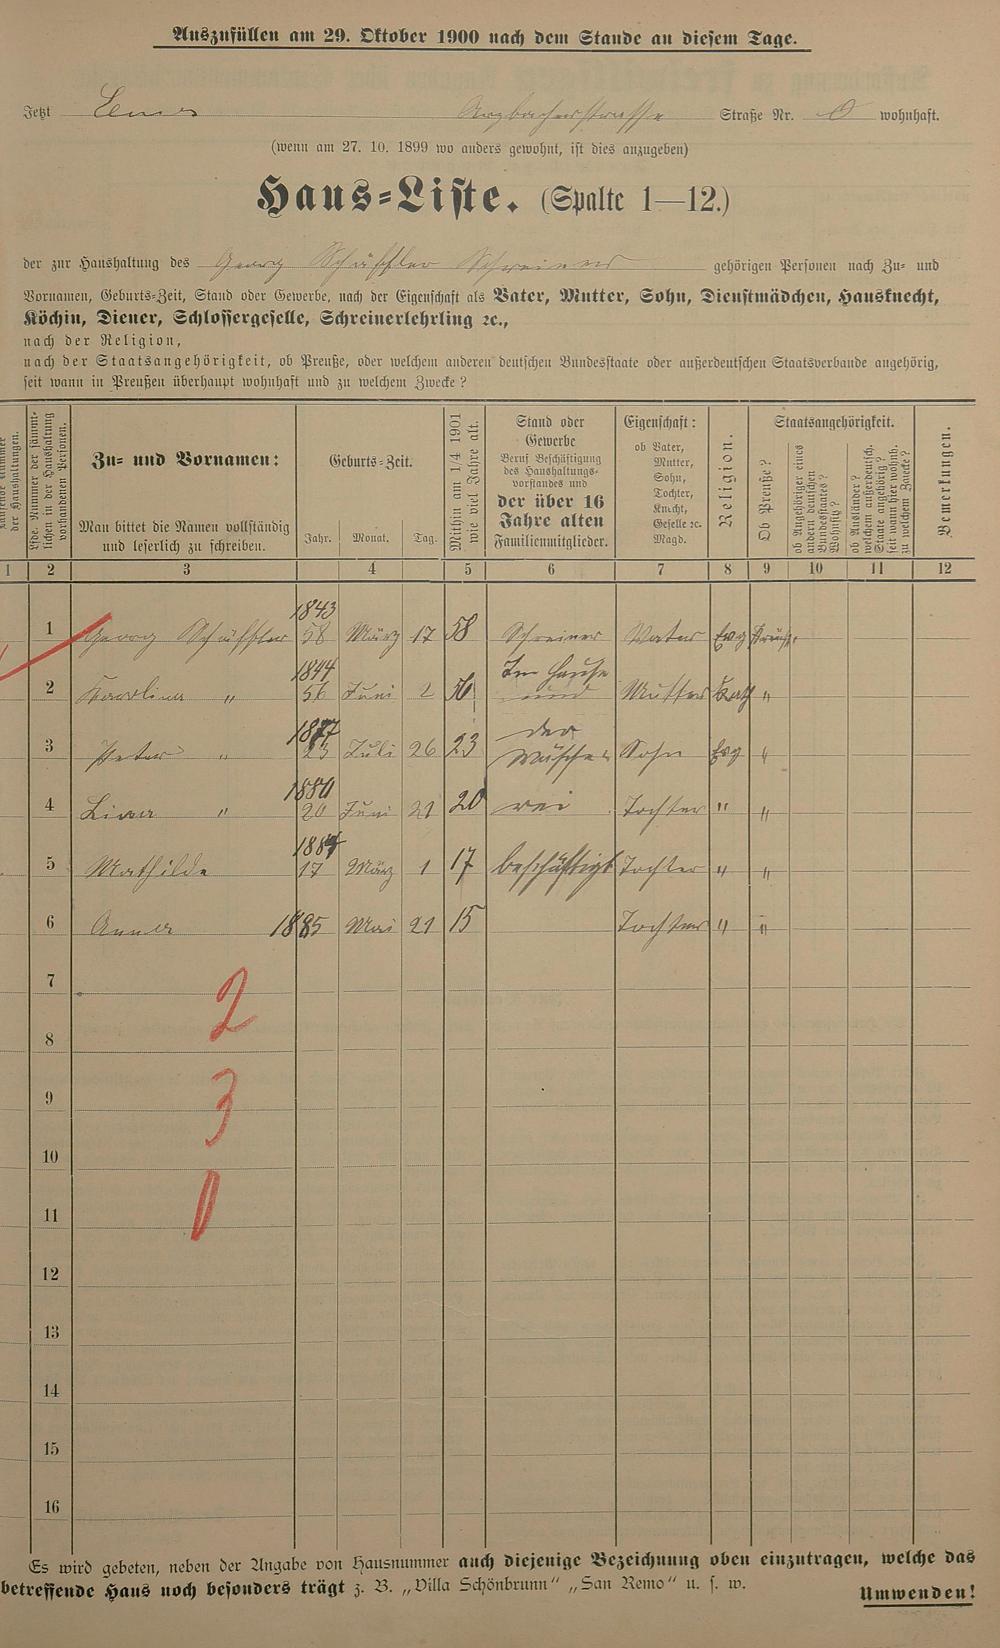 Auszufüllen am 29. Oktober 1900 nach dem Stande an diesem Tage.
Jetzt Ems Arzbacherstrasse Straße Nr. 0 wohnhaft.
(wenn am 27. 10. 1899 wo anders gewohnt, ist dies anzugeben)
Haus-Liste. (Spalte 1—12.)
der zur Haushaltung des Georg Schäffler Schreiner gehörigen Personen nach Zu- und
Vornamen, Geburts-Zeit, Stand oder Gewerbe, nach der Eigenschaft als Vater, Mutter, Sohn, Dienstmädchen, Hausknecht,
Köchin, Diener, Schlossergeselle, Schreinerlehrling ꝛc.,
nach der Religion,
nach der Staatsangehörigkeit, ob Preuße, oder welchem anderen deutschen Bundesstaate oder außerdeutschen Staatsverbande angehörig,
seit wann in Preußen überhaupt wohnhaft und zu welchem Zwecke?
Laufende Nummer der Haushaltungen.
Lfde. Nummer der sämmtlichen in der Haushaltung vorhandenen Personen.
Zu- und Vornamen:
Man bittet die Namen vollständig
und leserlich zu schreiben.
Geburts-Zeit.
Jahr. Monat. Tag.
Mithin am 1/4 1901 wie viel Jahre alt.
Stand oder
Gewerbe
Beruf Beschäftigung
des Haushaltungs-
vorstandes und
der über 16
Jahre alten
Familienmitglieder.
Eigenschaft:
ob Vater,
Mutter,
Sohn,
Tochter,
Knecht,
Geselle ꝛc.
Magd.
Religion.
Staatsangehörigkeit.
Ob Preuße?
ob Angehöriger eines andern deutschen Bundesstaates? Wohnsitz?
ob Ausländer? welchem außerdeutsch. Staate angehörig? seit wann hier wohnh. zu welchem Zwecke?
Bemerkungen.
1 2 3 4 5 6 7 8 9 10 11 12
1843
1 Georg Schäffler 58 März 17 58 Schreiner Vater Evg Preuße
1844 Im Hause
2 Karolina " 56 Juni 2 56 und Mutter Kath "
1877 der
3 Peter " 23 Juli 26 23 Wäsche- Sohn Evg "
1880
4 Lina " 20 Juni 21 20 rei Tochter " "
1884
5 Mathilde 17 März 1 17 beschäftigt Tochter " "
6 Anna 1885 Mai 21 15 Tochter " "
7
2
8
9
3
10
11
0
12
13
14
15
16
Es wird gebeten, neben der Angabe von Hausnummer auch diejenige Bezeichnung oben einzutragen, welche das
betreffende Haus noch besonders trägt z. B. „Villa Schönbrunn“ „San Remo“ u. s. w.
Umwenden!